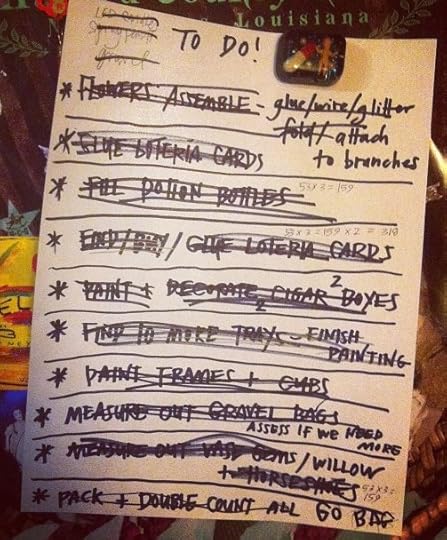 Louisiana
LED candle
Spray paint
gravel
TO DO!
* FLOWERS ASSEMBLE - glue/wire/glitter
fold/attach
to branches
* GLUE LOTERIA CARDS
* FILL POTION BOTTLES
53 x 3 = 159
53 x 3 = 159 x 2 = 318
* FIND/BUY/GLUE LOTERIA CARDS
* PAINT + DECORATE 2 CIGAR BOXES 2
* FIND 10 MORE TRAYS - FINISH
PAINTING
* PAINT FRAMES + CUBS
* MEASURE OUT GRAVEL BAGS
ASSESS IF WE NEED
MORE
* MEASURE OUT VASE GEMS/WILLOW
+ HORSESHOES
53 x 3 =
159
* PACK + DOUBLE COUNT ALL GO BAG